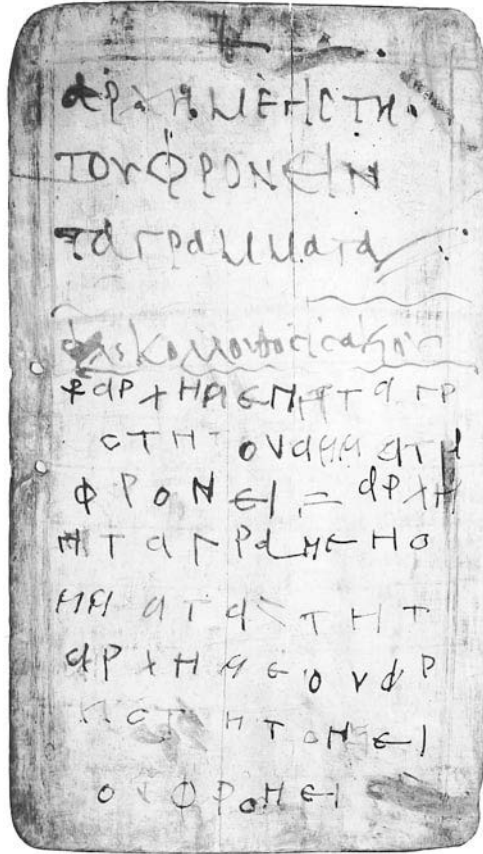 ΑΡΧΗ ΜΕΗCΤΗ
ΤΟΥ ΦΡΟΝΕΙΝ
ΤΑ ΓΡΑΜΜΑΤΑ
ΑΡΧΗΜΕΗ ΤΑ ΓΡ
CΤΗ ΟΥΑΜΜΑΤΑ
ΦΡΟΝΕΙ = ΑΡΧΗ
ΤΑΓΡΑΜΕΗΟ
ΜΜΑΤΑ ΤΗΤ
ΑΡΧΗΜΕΟΥΑΡ
ΗCΤΗΤΟΝΕΙ
ΟΥΦΡΟΝΕΙ